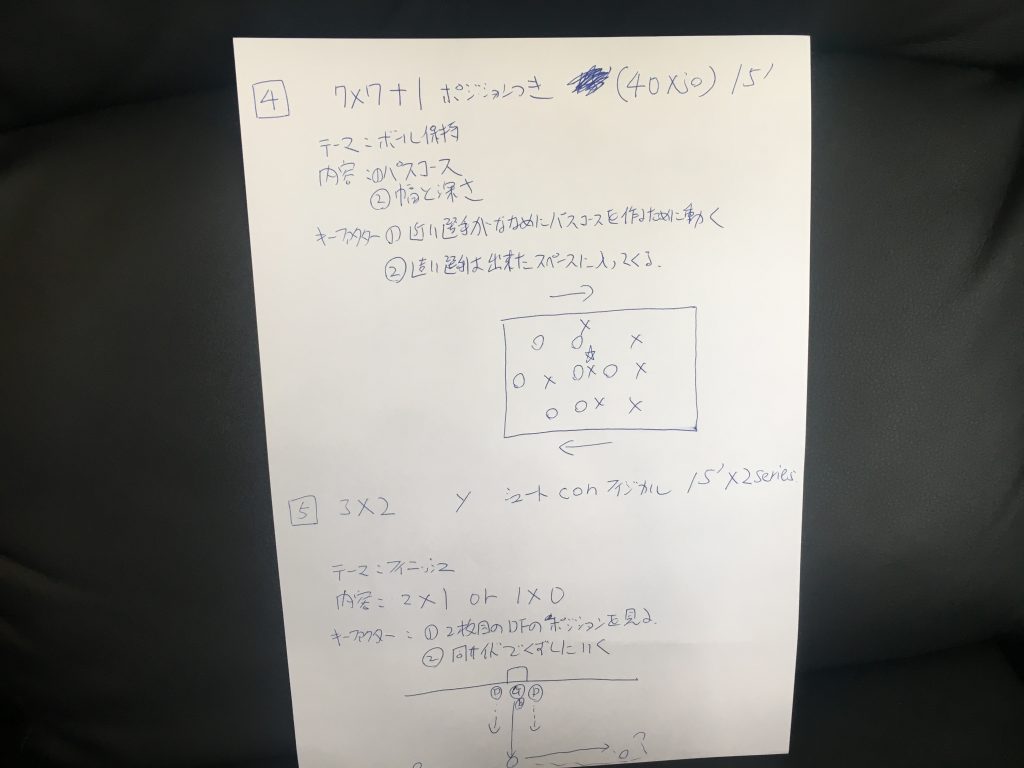 4 7×7+1 ポジションつき (40×50) 15'
テーマ:ボール保持
内容:①パスコース
②幅と深さ
キーファクター ① 近い選手がななめにパスコースを作るために動く
② 遠い選手は出来たスペースに入ってくる.
5 3×2 y シュート con フィジカル 15'×2series
テーマ:フィニッシュ
内容: 2×1 or 1×0
キーファクター: ① 2枚目のDFのポジションを見る
② 同サイドでくずしにいく
D G D
D
?